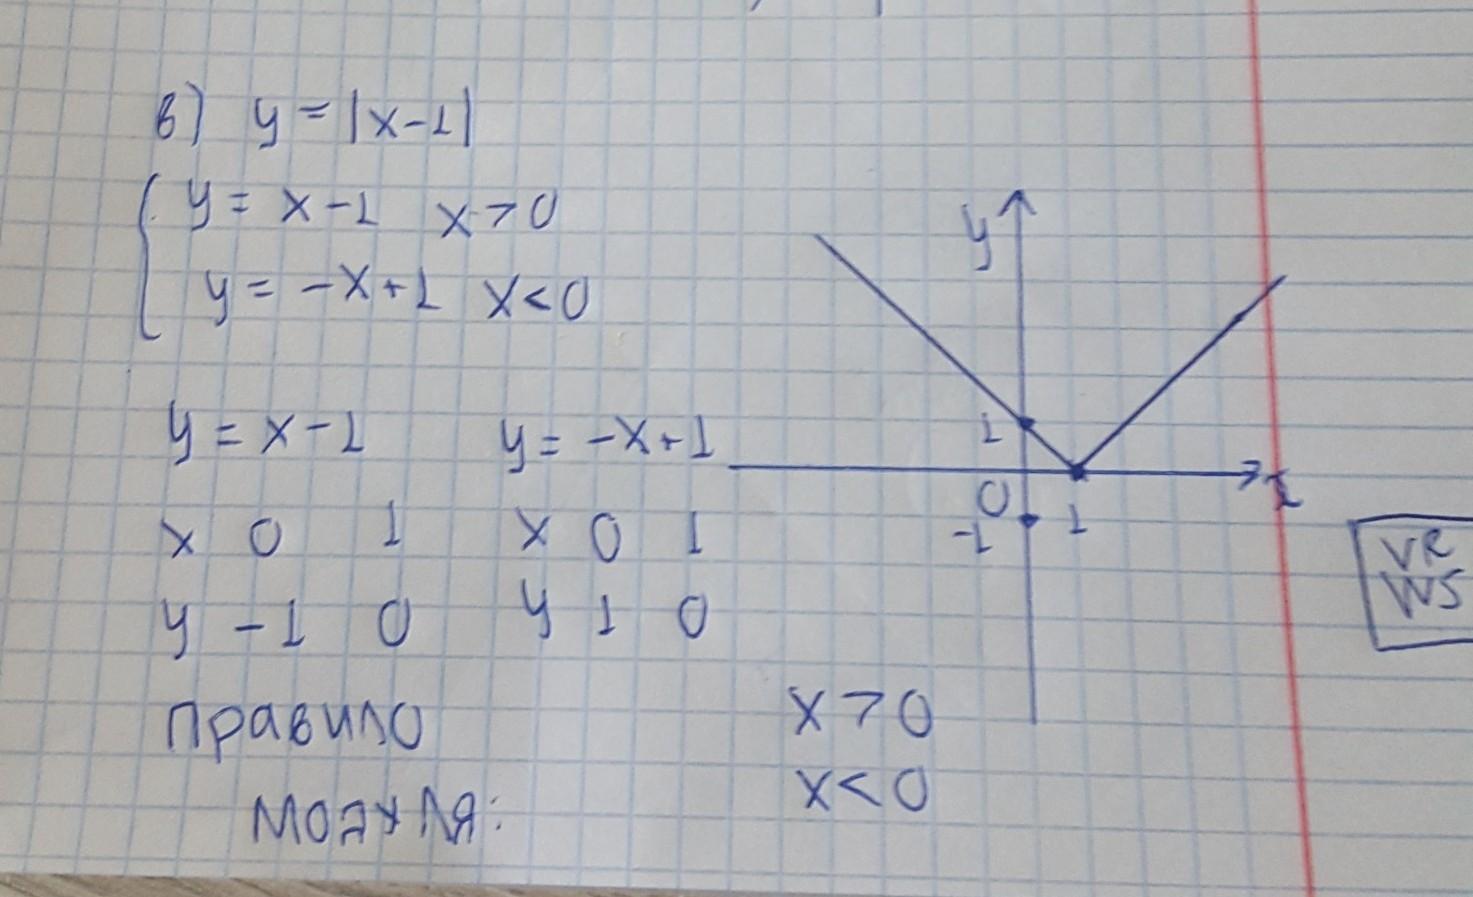 в) y = |x-1|
y = x-1 x>0
y = -x+1 x<0
y = x-1 y = -x+1
x 0 1 x 0 1
y -1 0 y 1 0
правило x>0
модуля: x<0
y
1
0
-1 1
x
VR
WS